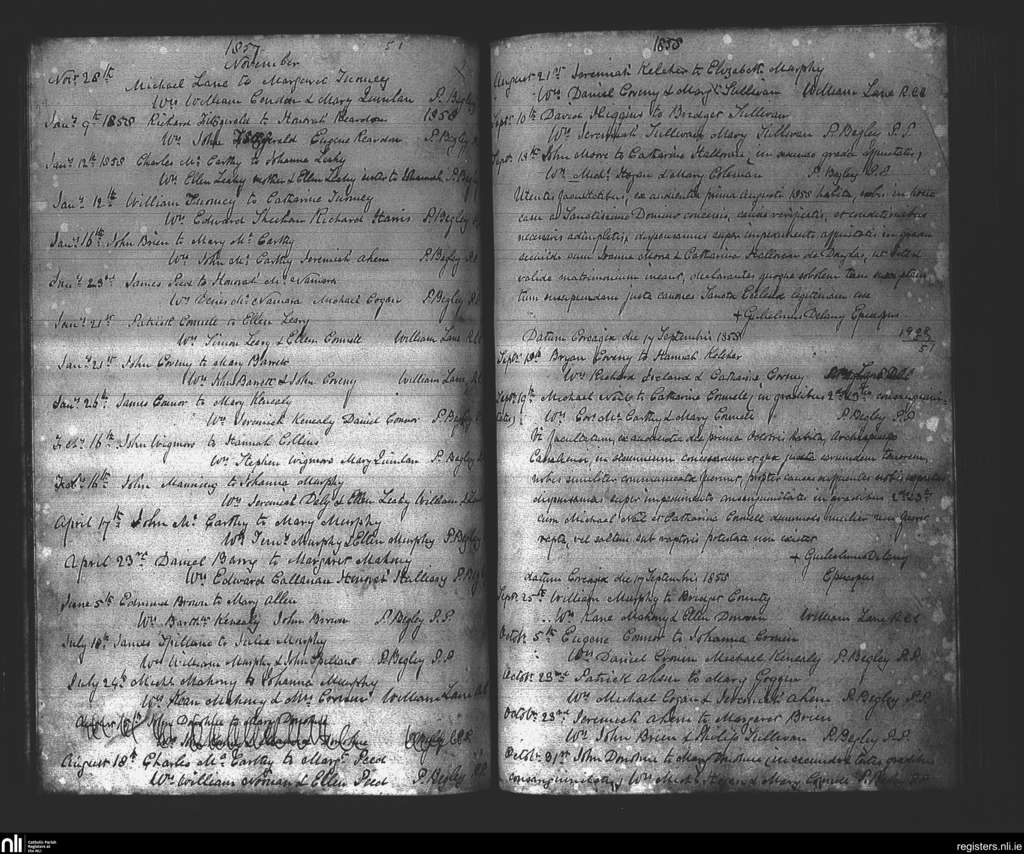 1857 51
November
Novr 28th
Michael Lane to Margaret Twomey
Wm William Condon & Mary Quinlan P. Begley
Jany 9th 1858 Richard Fitzgerald to Honorah Reardon 1858
Wm John Fitzgerald Eugene Reardon P. Begley
Jany 12th 1858 Charles Mc Carthy to Johanna Leahy
Wm Ellen Leahy mother & Ellen Leahy sister to P. Begley
Jany 12th William Twomey to Catharine Twomey
Wm Edward Sheehan Richard Harris P. Begley
Jany 16th John Brien to Mary Mc Carthy
Wm John Mc Carthy Jeremiah Ahern P. Begley P.P.
Jany 23rd James Peed to Honorah Mc Namara
Wm Denis Mc Namara Michael Cogan P. Begley P.P.
Jany 21st Patrick Connell to Ellen Leary
Wm Simon Leary & Ellen Connell William Lane
Jany 21st John Coveny to Mary Barrett
Wm John Barrett & John Coveny William Lane
Jany 26th James Connor to Mary Kenealy
Wm Jeremiah Kenealy Daniel Connor P. Begley
Feby 16th John Wigmore to Hannah Collins
Wm Stephen Wigmore Mary Quinlan P. Begley
Feby 16th John Manning to Johanna Murphy
Wm Jeremiah Daly & Ellen Leahy William Lane
April 17th John Mc Carthy to Mary Murphy
Wm Murphy & Ellen Murphy P. Begley
April 23rd Daniel Barry to Margaret Mahony
Wm Edward Callanan P. Begley
June 5th Edmund Brown to Mary Allen
Wm Barthw Kenealy John Brown P. Begley P.P.
July 18th James Spillane to Julia Murphy
Wm William Murphy & John Spillane P. Begley P.P.
July 24th Michl Mahony to Johanna Murphy
Wm Mahony & William Lane
John Donohue to Mary
August 18th Charles Mc Carthy to Margt Peed
Wm William Noonan & Ellen Peed P. Begley P.P.
1858
August 21st Jeremiah Kelcher to Elizabeth Murphy
Wm Daniel Coveny & Margt Sullivan William Lane R.C.C.
Septr 10th David Higgins to Bridget Sullivan
Wm Jeremiah Sullivan Mary Sullivan P. Begley P.P.
Septr 18th John Moore to Catharine Halloran, in secundo gradu affinitatis;
Wm Michl Hogan & Mary Coleman P. Begley P.P.
Utentes facultatibus, ex audientia prima Augusti 1858 habita, nobis in hocce
casu a Sanctissimo Domino concessis, causis verificatis, et conditionibus
necesariis adimpletis, dispensamus super impedimento affinitatis in gradu
secundo cum Joanne Moore & Catharina Halloran de Douglas, ut licite &
valide matrimonium ineant, declarantes quoque sobolem tam susceptam
tum suscipiendam juxta canones Sanctae Ecclesiae legitimam esse
+ Gulielmus Delany Episcopus
Datum Corcagiae die 17 Septembris 1858 1928
51
Septr 18th Bryan Coveny to Hannah Kelcher
Wm Richard Ireland & Catharine Coveny
Septr 10th Michael Neil to Catharine Connell, in gradibus 2nd & 3rd consanguini-
tatis Wm Cors Mc Carthy & Mary Connell P. Begley P.P.
Vi facultatum, ex audientia die prima Octobris habita, Archiepiscopo
Casaliensi, in decennium concessarum, juxta eorundem tenorem,
nobis similiter communicatae fuerunt, propter causas sufficientes nobis expositas
dispensamus super impedimento consanguinitatis in gradibus 2nd & 3rd
cum Michael Neil et Catharina Connell dummodo mulier non fuerit
rapta, vel saltem sub raptoris potestate non existet
+ Gulielmus Delany
datum Corcagiae die 17 Septembris 1858 Episcopus
Septr 25th William Murphy to Bridget County
Wm Kane Mahony & Ellen Donovan William Lane R.C.C.
Octobr 5th Eugene Connor to Johanna Cronin
Wm Daniel Cronin Michael Kenealy P. Begley P.P.
Octobr 23rd Patrick Ahern to Mary Goggin
Wm Michael Cogan & Jeremiah Ahern P. Begley P.P.
Octobr 23rd Jeremiah Ahern to Margaret Brien
Wm John Brien & Philip Sullivan P. Begley P.P.
Octobr 31st John Donohue to Mary Donohue (in secundo gradu
consanguinitatis) Wm Michl & Mary P. Begley P.P.
nli
Catholic Parish
Registers at
the NLI
registers.nli.ie